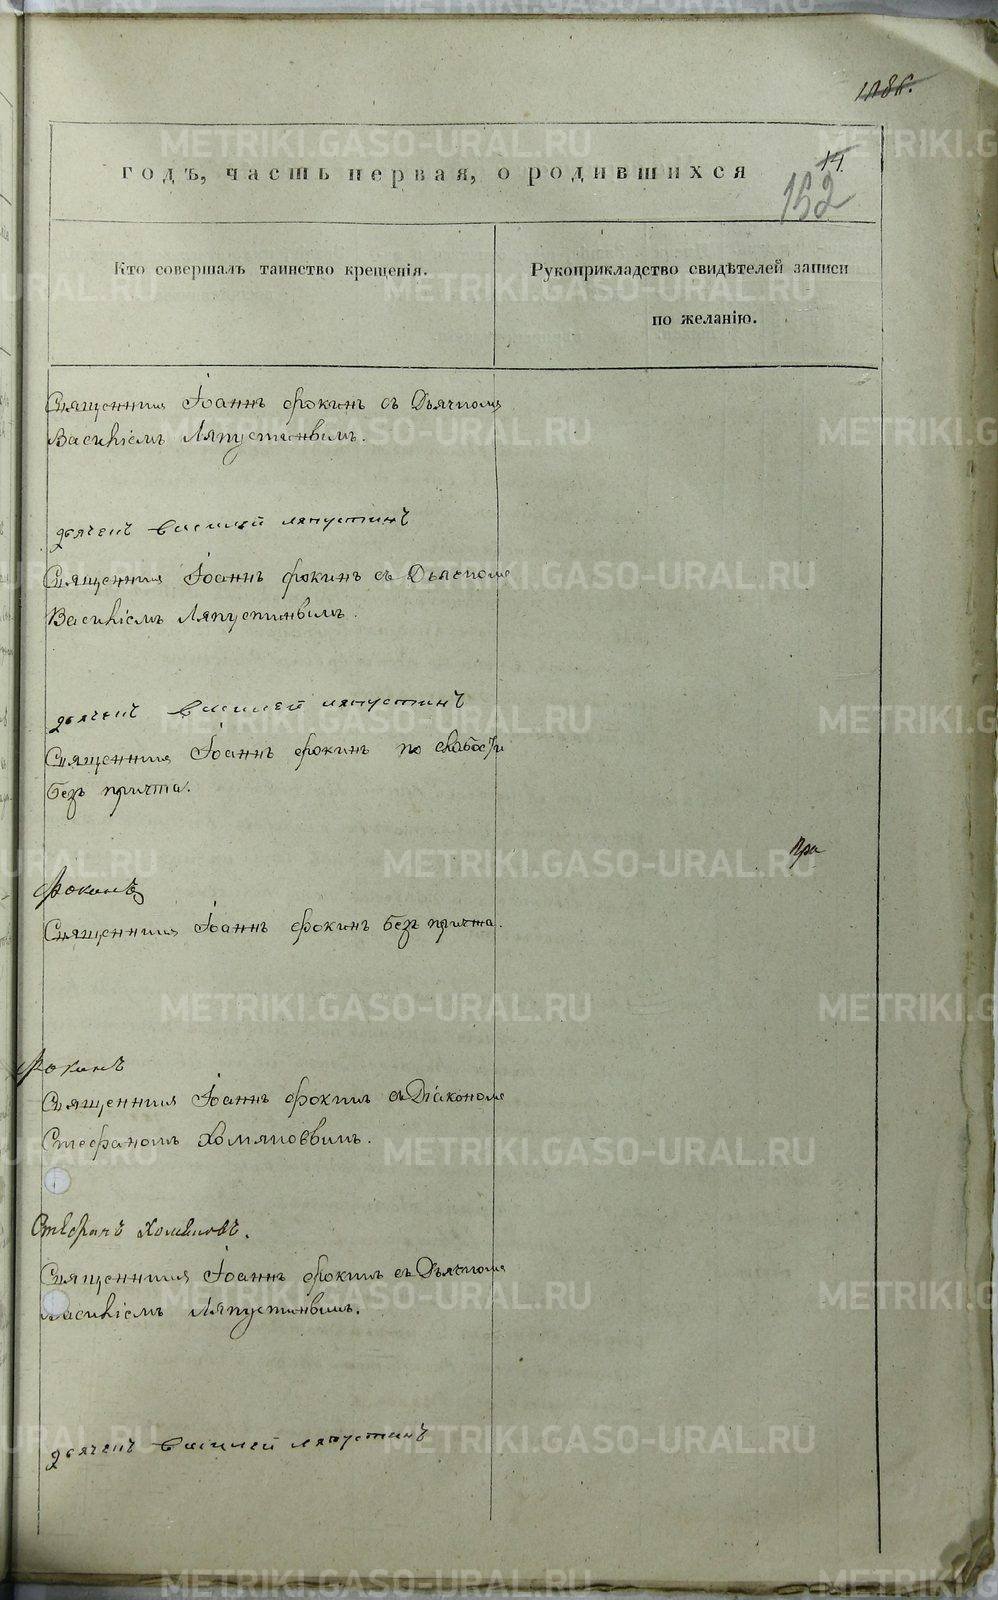 годъ, часть первая, о родившихся
14.
152
Кто совершалъ таинство крещенія.
Рукоприкладство свидѣтелей записи
по желанію.
Священникъ Іоаннъ Фокинъ съ Дьячкомъ
Василіемъ Ляпустинымъ.
дьячекъ василей ляпустинъ
Священникъ Іоаннъ Фокинъ съ Дьячкомъ
Василіемъ Ляпустинымъ.
дьячекъ василей ляпустинъ
Священникъ Іоаннъ Фокинъ по слабости
безъ причта.
Фокинъ
Священникъ Іоаннъ Фокинъ безъ причта.
Фокинъ
Священникъ Іоаннъ Фокинъ съ Діакономъ
Стефаномъ Хомяковымъ.
Стефанъ Хомяковъ.
Священникъ Іоаннъ Фокинъ съ Дьячкомъ
Василіемъ Ляпустинымъ.
дьячекъ василей ляпустинъ
METRIKI.GASO-URAL.RU